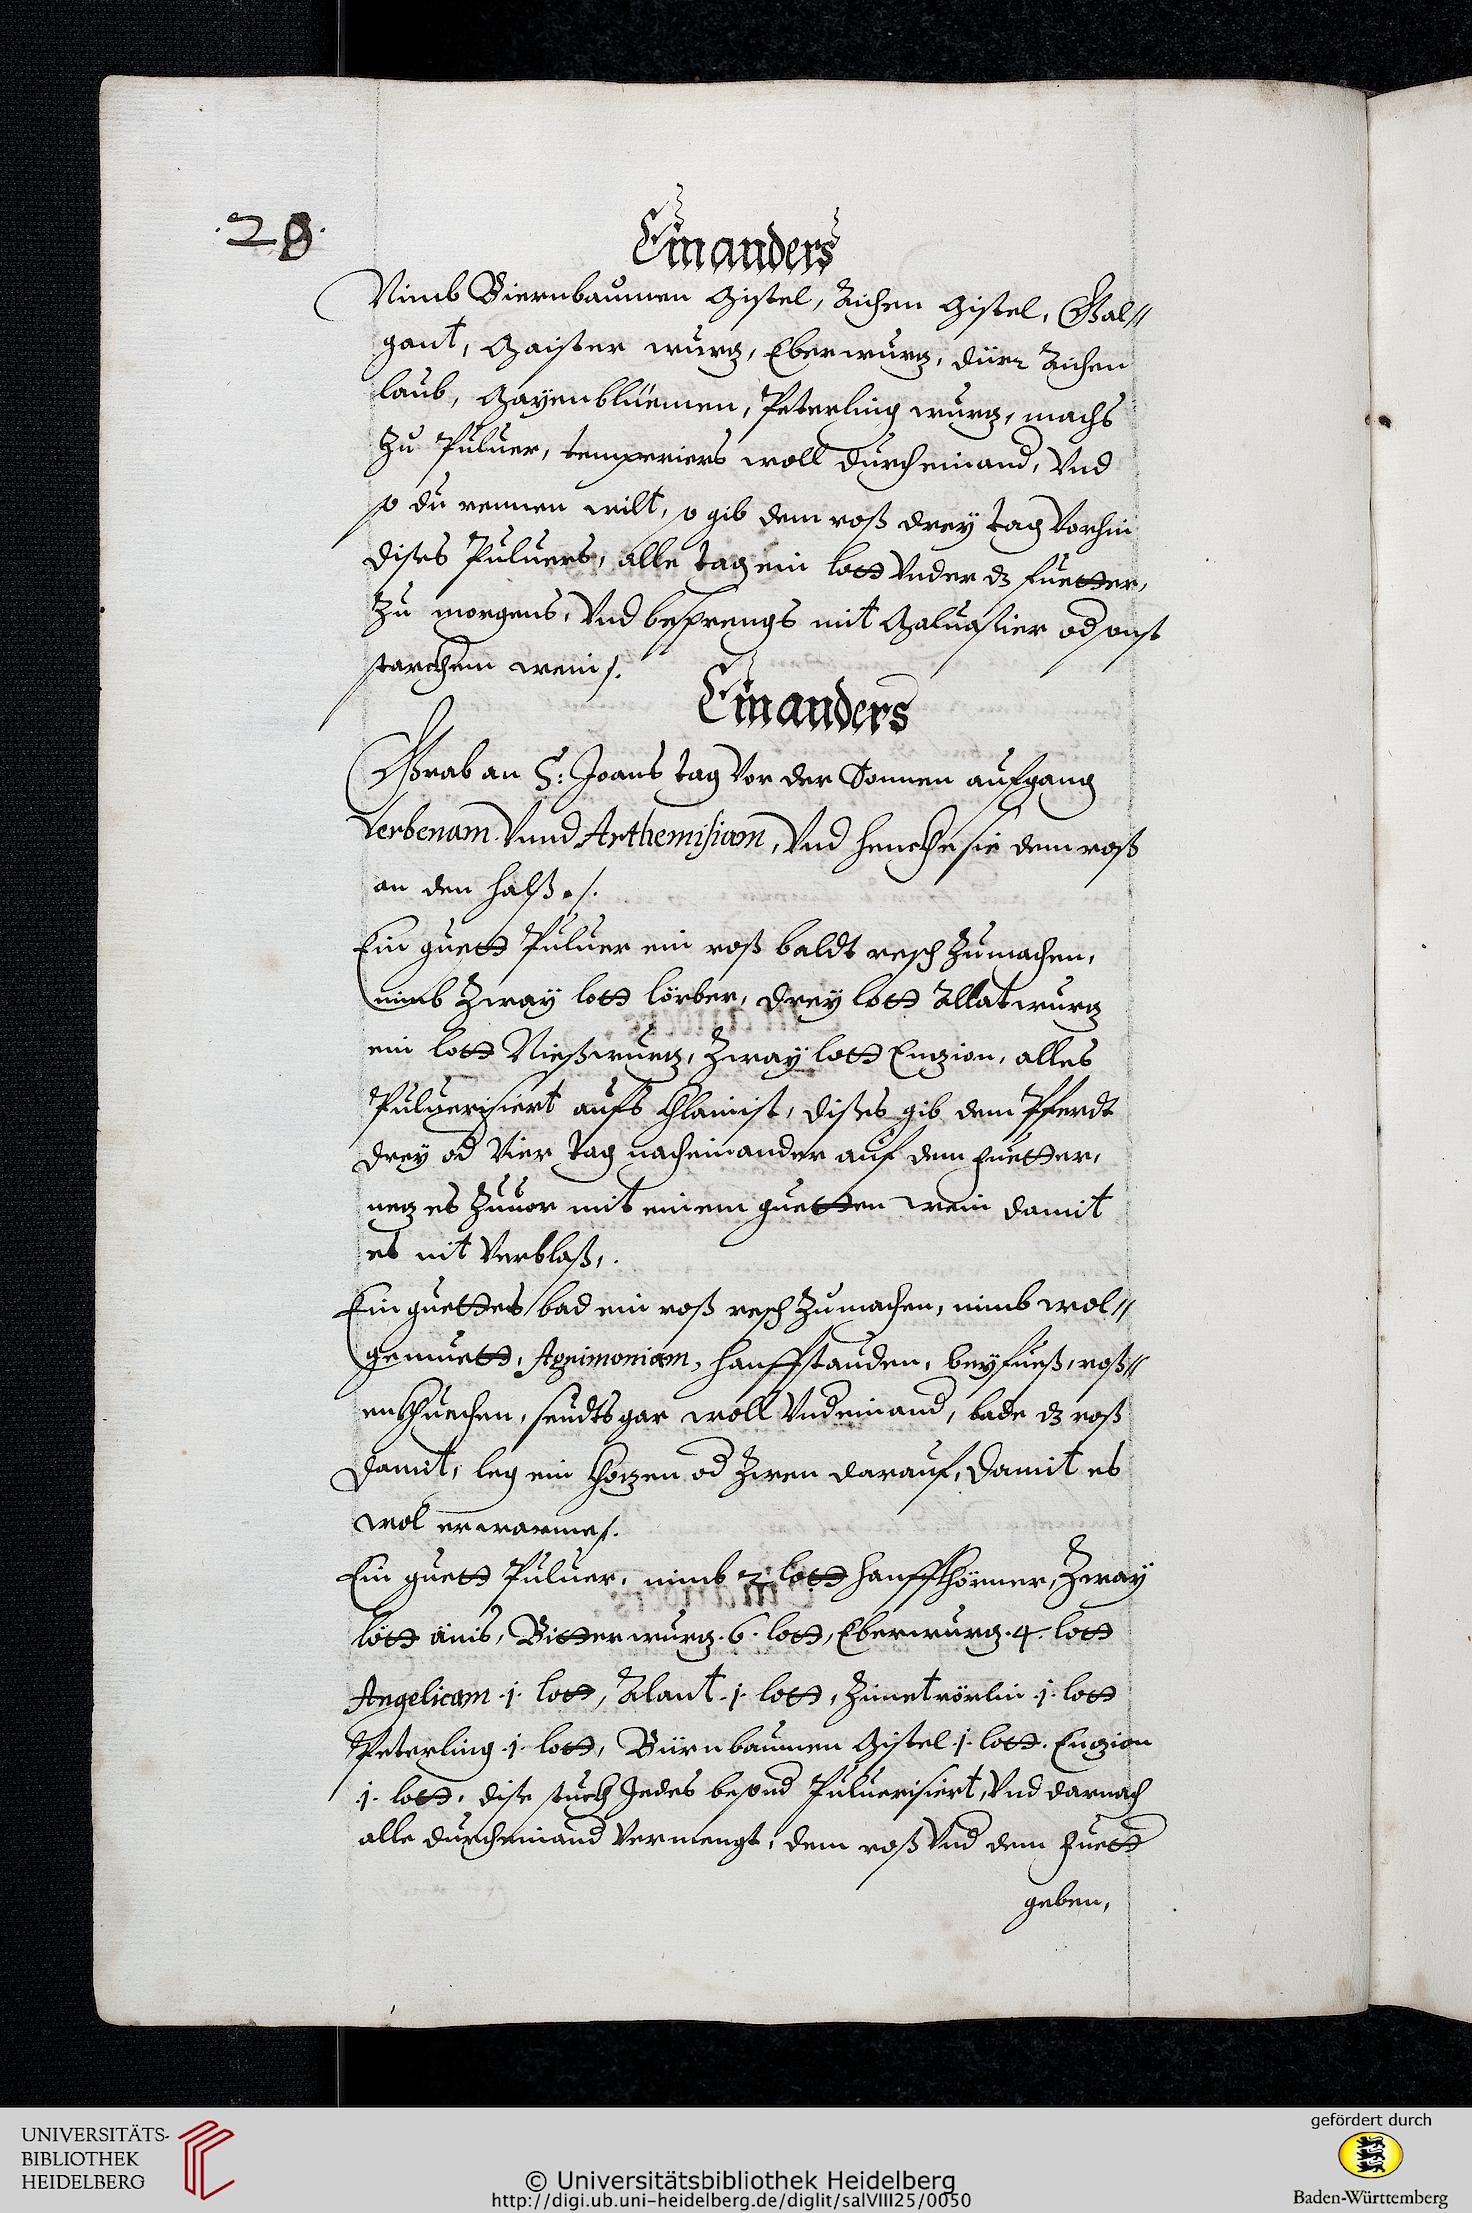 .28.
Ein anders
Nimb Biernbaumen Mistel, Aichen Mistel, Gal//
gant, Maister wurz, Eberwurz, dürr Aichen
laub, Mayenblüemen, Peterling wurz, machs
Zu Puluer, temperiers woll durch einand, Vnd
so du rennen wilt, so gib dem roß dreÿ tag Vorhin
dises Puluers, alle tag ein lott Vnder dz fuetter,
Zu morgens, Vnd besprengs mit Maluasier od sonst
starckhem wein/.
Ein anders
Grab an S: Joans tag Vor der Sonnen aufgang
Verbenam Vnnd Arthemisiam, Vnd henckhe sie dem roß
an den halß ./.
Ein guett Puluer ein roß baldt resch Zumachen,
nimb Zwaÿ lott lörber, dreÿ lott Allatwurz
ein lott Nießwurz, Zwaÿ lott Enzion, alles
Puluerisiert aufs Khlainist, dises gib dem Pferdt
dreÿ od Vier tag nacheinander auf dem fuetter,
nez es Zuuor mit einem guetten wein damit
es nit Verblaß,.
Ein guettes bad ein roß resch Zumachen, nimb wol//
gemuett, Agrimoniam, hanffstauden, beÿfueß, roß//
en Khuechen, seudts gar woll Vnd einand, bade dz roß
damit, leg ein Khozen od Zwen darauf, damit es
wol erwarme/.
Ein guett Puluer, nimb 2 lott hanffkhörner, Zwaÿ
lott änis, Bitterwurz .6. lott, Eberwurz .4. lott
Angelicam .j. lott, Alant .j. lott, Zimetrörlin .j. lott
Peterling .j. lott, Biirnbaumen Mistel .j. lott. Enzion
.j. lott, dise stuckh Jedes besond Puluerisiert, Vnd darnach
alle durcheinand Vermengt, dem roß Vnd dem fuett
geben,
UNIVERSITÄTS-
BIBLIOTHEK
HEIDELBERG
© Universitätsbibliothek Heidelberg
http://digi.ub.uni-heidelberg.de/diglit/salVIII25/0050
gefördert durch
Baden-Württemberg